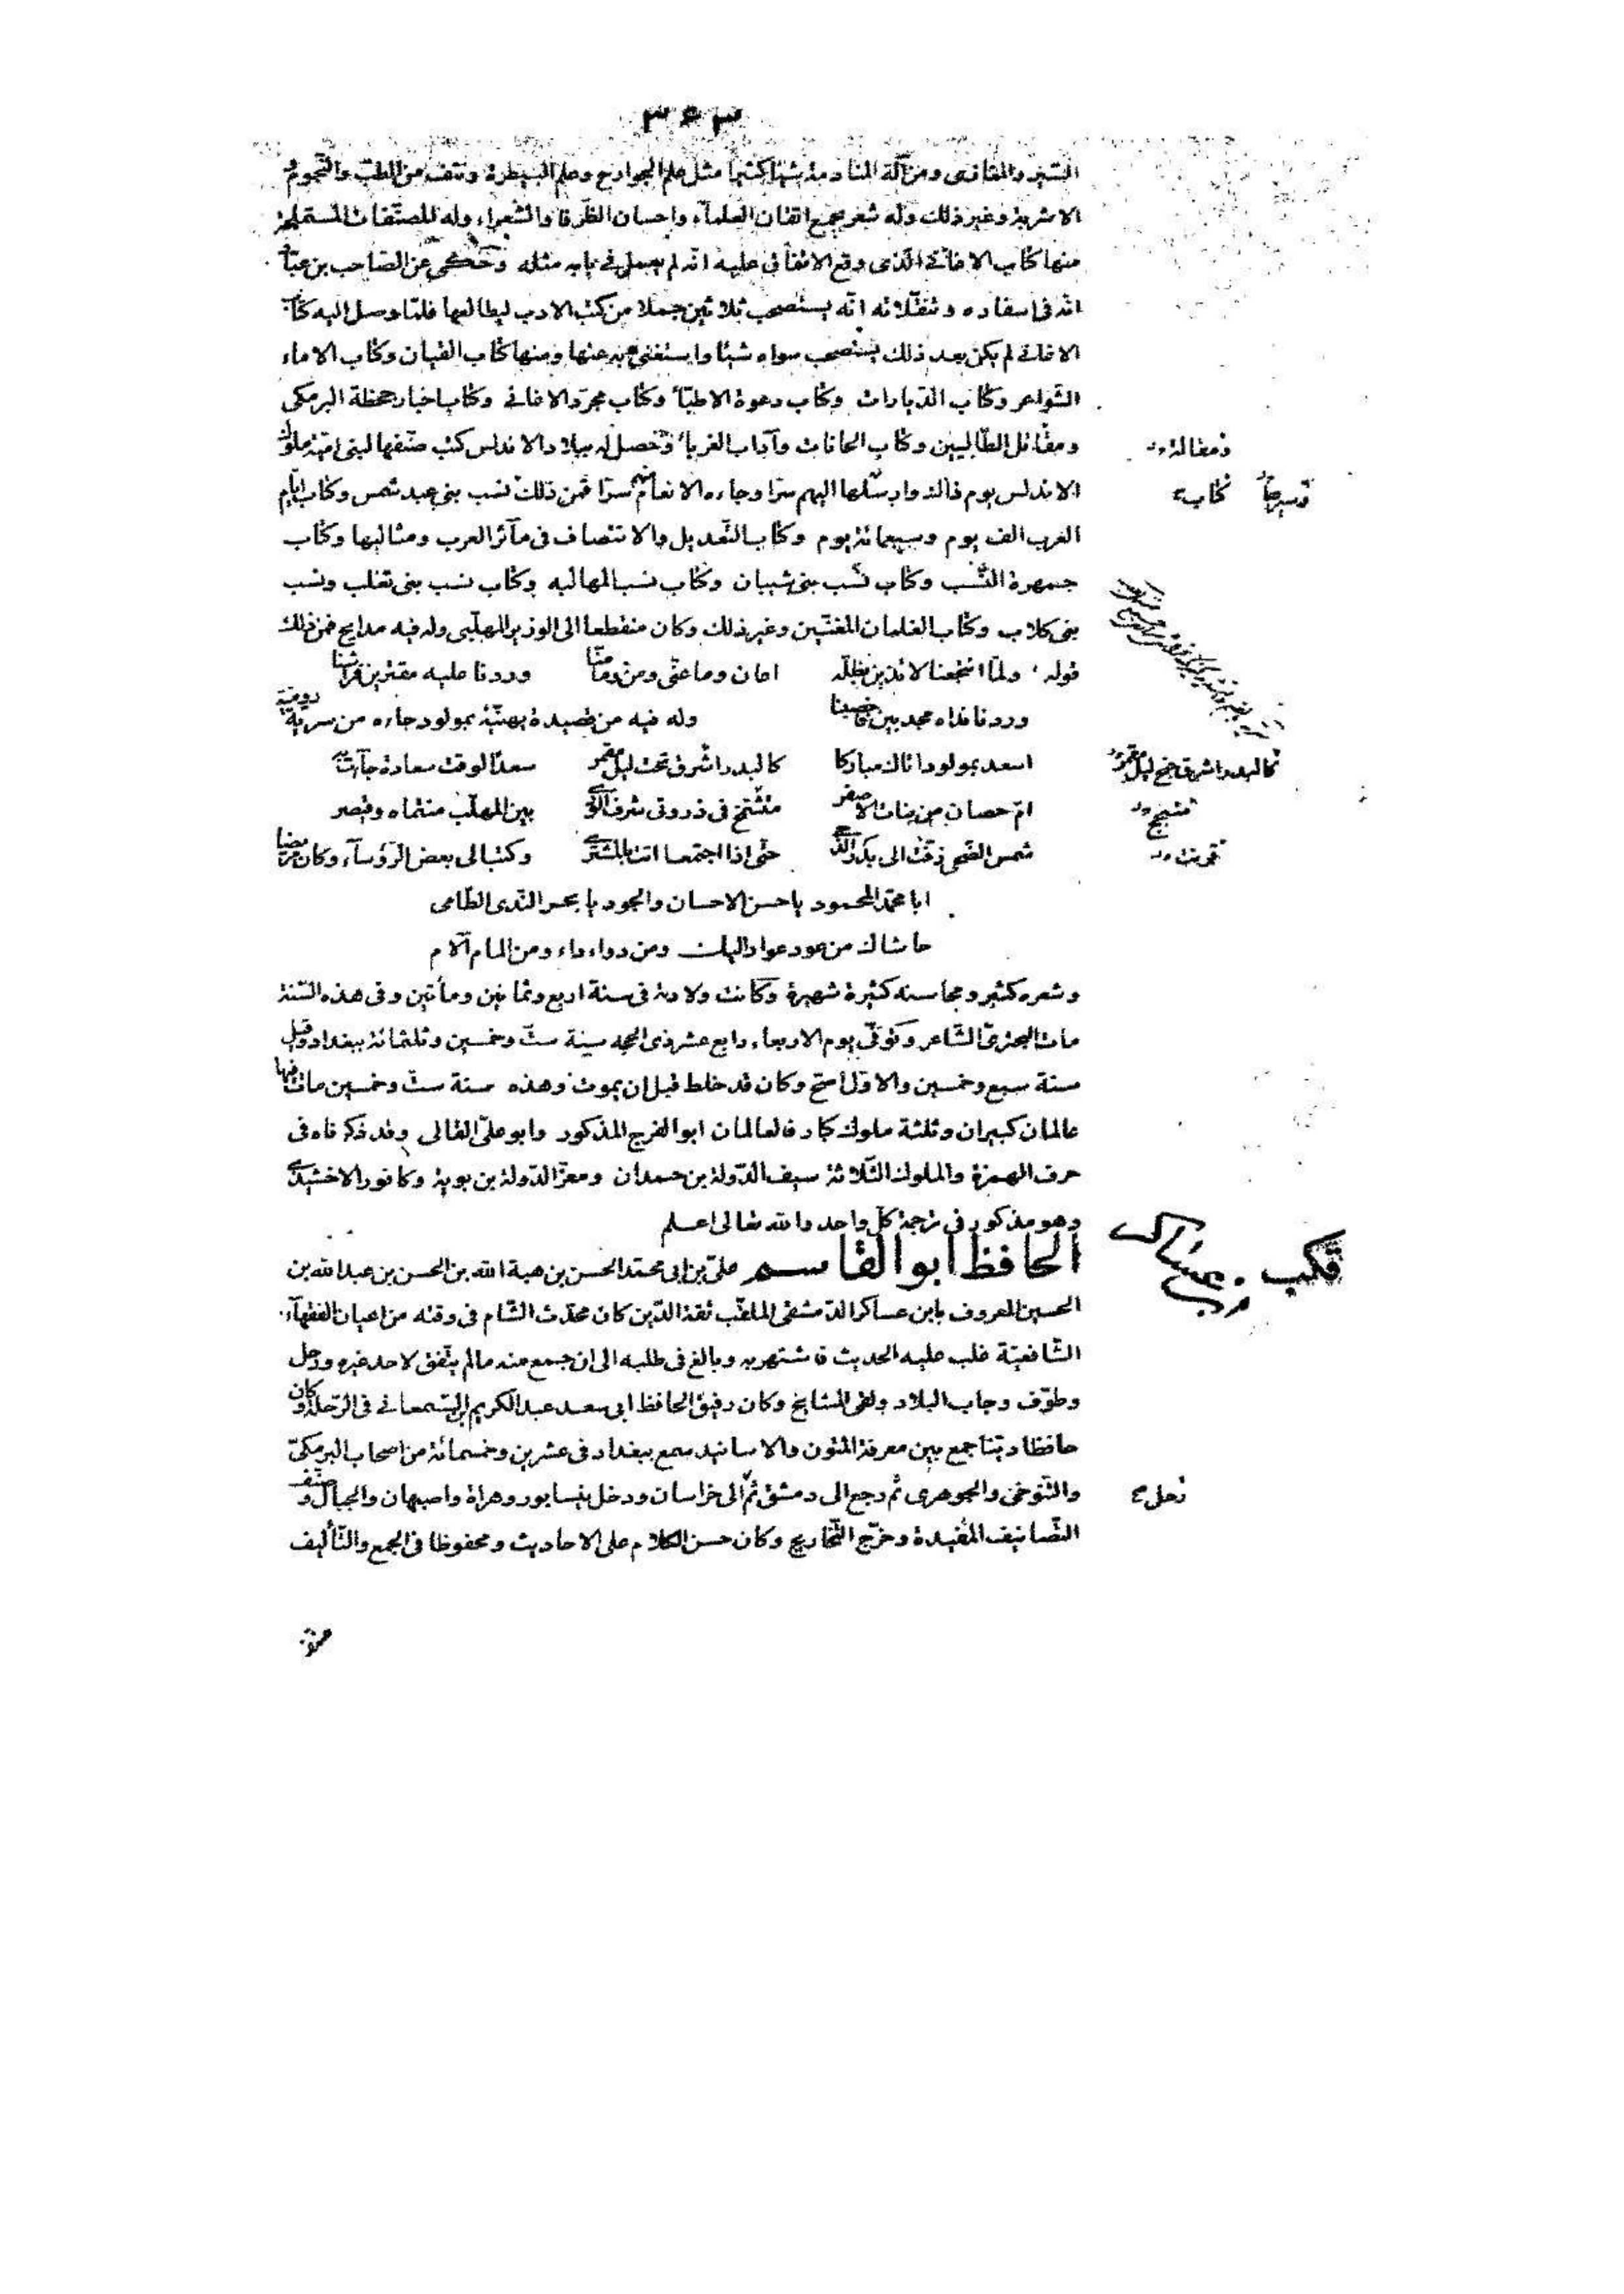 ٣٤٣
السير والمغازى ومن آلة المنادمة شيئا كثيرا مثل علم الجوارح وعلم البيطرة ونتف من الطب والنجوم و
الاشربة وغير ذلك وله شعر يجمع اتقان العلماء واحسان الظرفا والشعراء وله المصنفات المستملحة
منها كتاب الاغانى الذى وقع الاتفاق عليه انه لم يعمل فى بابه مثله وحكى عن الصاحب بن عباد
انه فى اسفاره وتنقلاته انه يستصحب ثلاثين جملا من كتب الادب ليطالعها فلما وصل اليه كتاب
الاغانى لم يكن بعد ذلك يستصحب سواه شيئا واستغنى به عنها ومنها كتاب القيان وكتاب الاماء
الشواعر وكتاب الديارات وكتاب دعوة الاطبّاء وكتاب مجرد الاغانى وكتاب اخبار جحظة البرمكى
ومقاتل الطالبيين وكتاب الحانات وآداب الغرباء وحصل له ببلاد الاندلس كتب صنفها لبنى امية ملوك
الاندلس يوم ذالك وارسلها اليهم سرا وجاءه الانعام منهم سرا فمن ذلك نسب بنى عبد شمس وكتاب ايام
العرب الف يوم وسبعمائة يوم وكتاب التعديل والانتصاف فى مآثر العرب ومثالبها وكتاب
جمهرة النسب وكتاب نسب بنى شيبان وكتاب نسب المهالبه وكتاب نسب بنى تغلب ونسب
بنى كلاب وكتاب الغلمان المغنين وغير ذلك وكان منقطعا الى الوزير المهلبى وله فيه مدايح فمن ذلك
قوله ولما انتجعنا لائذين بظله اعان وما عنّى ومن وما منّا وردنا عليه مقترين فراشنا
وردنا نداه مجدبين فاخصبنا وله فيه من قصيدة يهنيه بمولود جاءه من سرية رومية
اسعد بمولود اتاك مباركا كالبدر اشرق تحت ليل مقمر سعد لوقت سعادة جاءت به
كالبدر اشرق جنح ليل مقمر
ام حصان من بنات الاصفر متبجح فى ذروتى شرف الورى بين المهلب منتماه وقيصر
شمس الضحى زفت الى بدر الدجى حتى اذا اجتمعا اتت بالمشترى وكتب الى بعض الرؤساء وكان مريضا
ابا محمد المحمود يا حسن الاحسان والجود يا بحر الندى الطامى
حاشاك من عود عواد اليك ومن دواء داء ومن المام آلام
وشعره كثير ومحاسنه كثيرة شهيرة وكانت ولادته فى سنة اربع وثمانين ومأتين وفى هذه السنة
مات البحترى الشاعر وتوفى يوم الاربعاء رابع عشر ذى الحجه سنة ست وخمسين وثلثمائة ببغداد وقيل
سنة سبع وخمسين والاول اصح وكان قد خلط قبل ان يموت وهذه سنة ست وخمسين مات فيها
عالمان كبيران وثلثة ملوك كبار فالعالمان ابو الفرج المذكور وابو على القالى وقد ذكرناه فى
حرف الهمزة والملوك الثلاثة سيف الدولة بن حمدان ومعز الدولة بن بويه وكافور الاخشيدى
وهو مذكور فى ترجمة كل واحد والله تعالى اعلم
الحافظ ابو القاسم على بن ابى محمد الحسن بن هبة الله بن الحسن بن عبد الله بن
ابن عساكر
الحسين المعروف بابن عساكر الدمشقى الملقب ثقة الدين كان محدث الشام فى وقته من اعيان الفقهاء
الشافعية غلب عليه الحديث فاشتهر به وبالغ فى طلبه الى ان جمع منه مالم يتفق لاحد غيره ورحل
وطوف وجاب البلاد ولقى المشايخ وكان رفيق الحافظ ابى سعد عبد الكريم بن السمعانى فى الرحلة وكان
حافظا دينا جمع بين معرفة المتون والاسانيد سمع ببغداد فى عشرين وخمسمائة من اصحاب البرمكى
والتنوخى والجوهرى ثم رجع الى دمشق ثم الى خراسان ودخل نيسابور وهراة واصبهان والجبال وصنف
التصانيف المفيدة وخرج التخاريج وكان حسن الكلام على الاحاديث ومحفوظا فى الجمع والتأليف